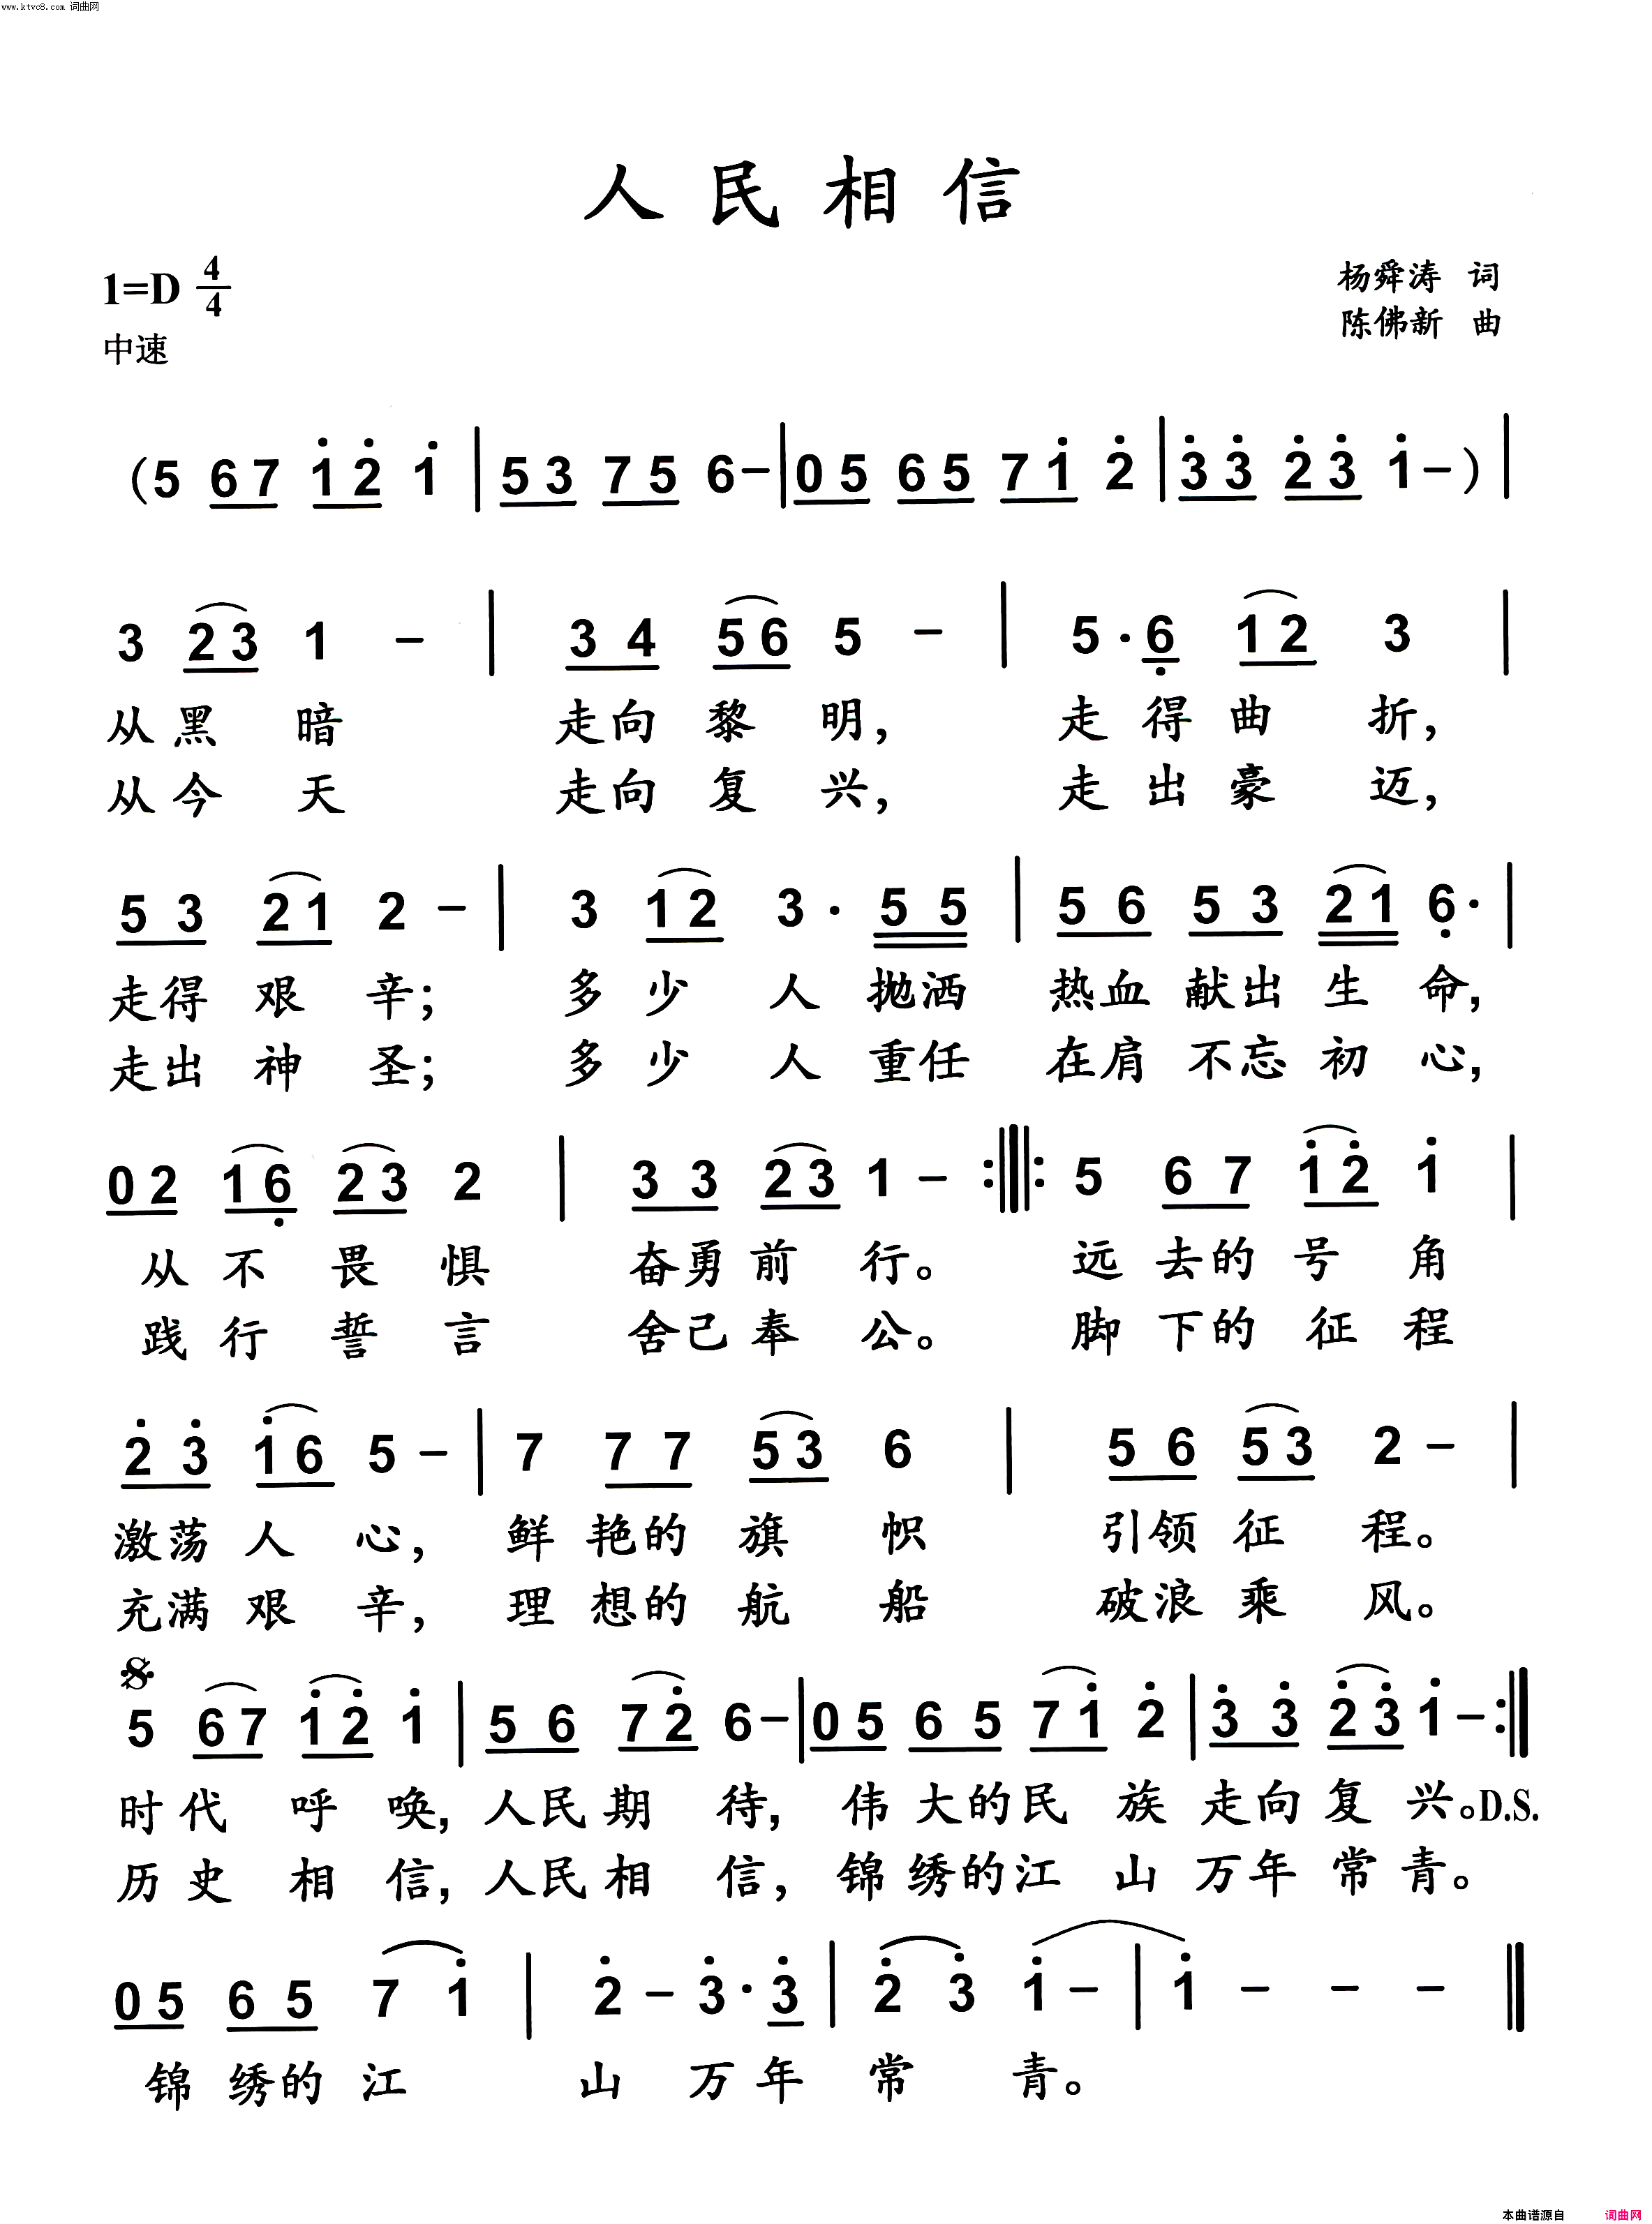 www.ktvc8.com 词曲网
人民相信
1=D 4/4
杨舜涛 词
中速
陈佛新 曲
(5 67 1̇2̇ 1̇ | 53 75 6- | 05 65 71̇ 2̇ | 3̇3̇ 2̇3̇ 1̇-) |
3 23 1 - | 34 56 5 - | 5·6̣ 12 3 |
从黑暗 走向黎明, 走得曲折,
从今天 走向复兴, 走出豪迈,
53 21 2- | 3 12 3· 55 | 56 53 21 6̣· |
走得艰辛; 多少人抛洒 热血献出生命,
走出神圣; 多少人重任 在肩不忘初心,
02 16̣ 23 2 | 33 23 1- :||: 5 67 1̇2̇ 1̇ |
从不畏惧 奋勇前行。 远去的号角
践行誓言 舍己奉公。 脚下的征程
2̇3̇ 1̇6 5- | 7 77 53 6 | 56 53 2- |
激荡人心, 鲜艳的旗帜 引领征程。
充满艰辛, 理想的航船 破浪乘风。
𝄋
5 67 1̇2̇ 1̇ | 56 72̇ 6- | 05 65 71̇ 2̇ | 3̇3̇ 2̇3̇ 1̇- :||
时代呼唤, 人民期待, 伟大的民族走向复兴。D.S.
历史相信, 人民相信, 锦绣的江山万年常青。
05 65 7 1̇ | 2̇ - 3̇·3̇ | 2̇ 3̇ 1̇ - | 1̇ - - - ||
锦绣的江 山万年常青。
本曲谱源自 词曲网